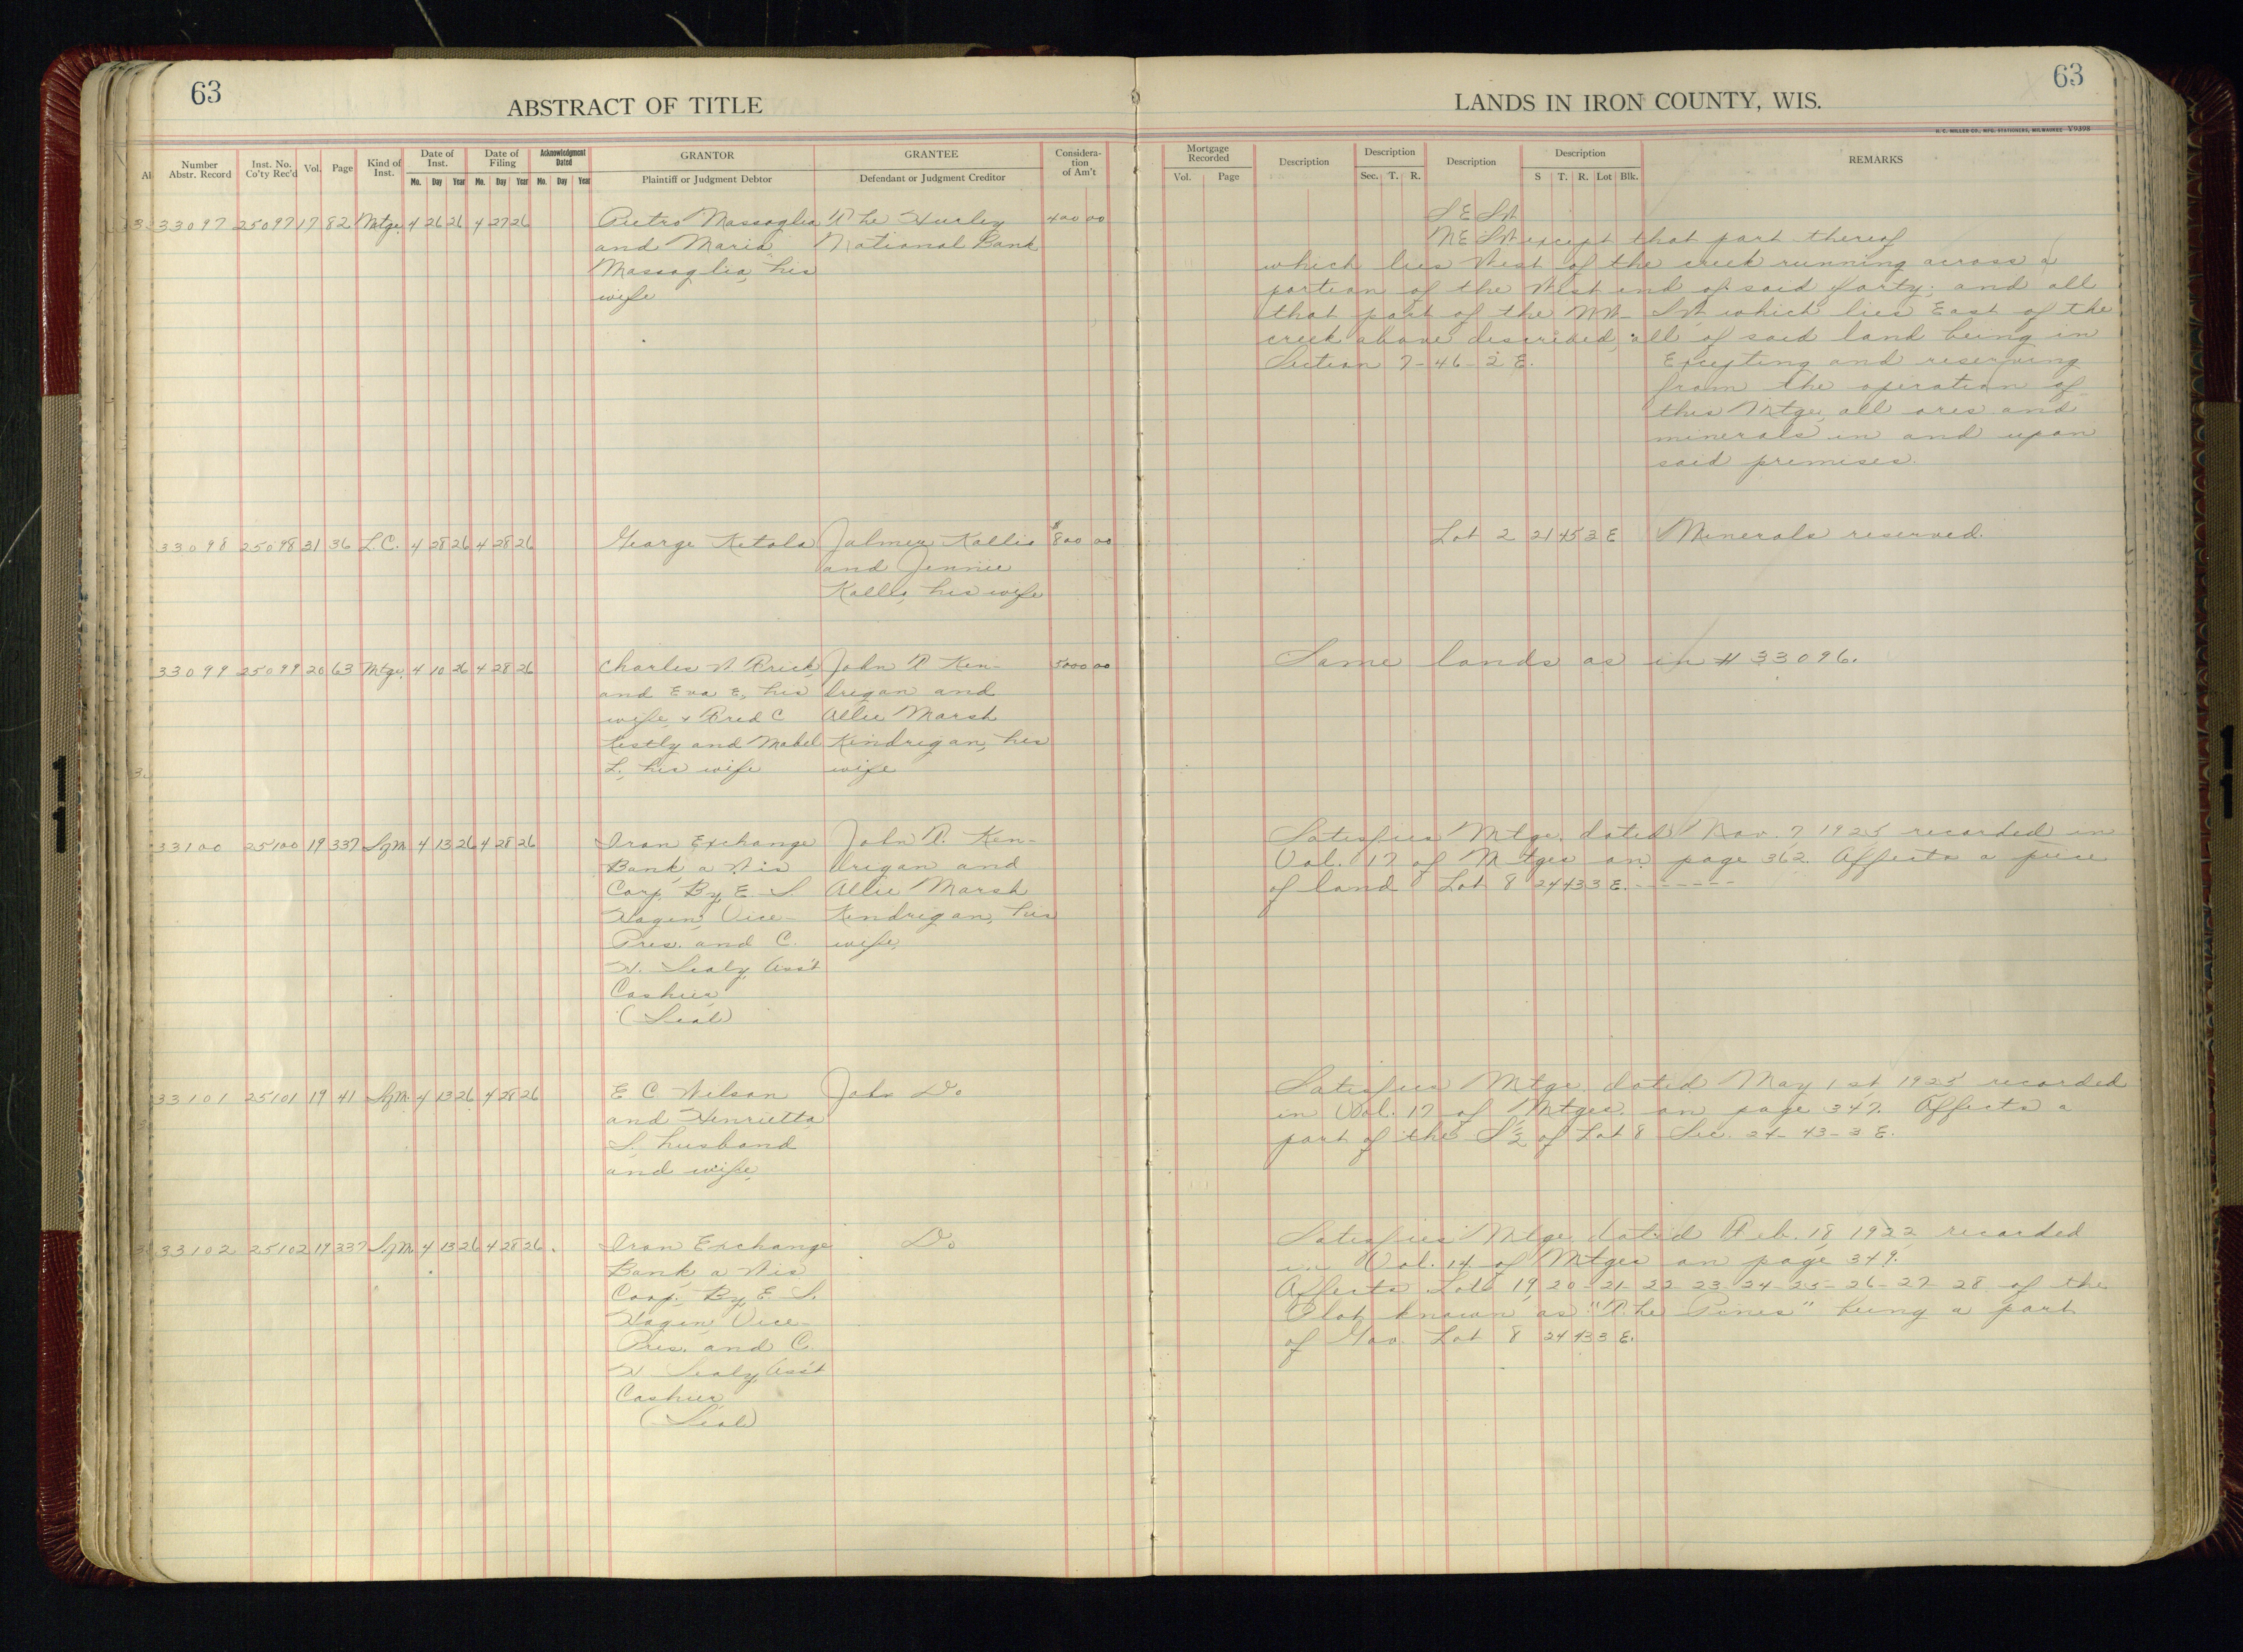 63
ABSTRACT OF TITLE
Number Abstr. Record
Inst. No. Co'ty Rec'd
Vol.
Page
Kind of Inst.
Date of Inst.
Mo. Day Year
Date of Filing
Mo. Day Year
Acknowledgment Dated
Mo. Day Year
GRANTOR
Plaintiff or Judgment Debtor
GRANTEE
Defendant or Judgment Creditor
Considera- tion of Am't
63
LANDS IN IRON COUNTY, WIS.
H. C. MILLER CO., MFG. STATIONERS, MILWAUKEE Y9398
Mortgage Recorded
Vol. Page
Description
Description
Sec. T. R.
Description
Description
S T. R. Lot Blk.
REMARKS
33097 25097 17 82 Mtge. 4 26 26 4 27 26
Pietro Massoglia
and Maria
Massoglia, his
wife
The Hurley
National Bank
400 00
S E SW
NE SW except that part thereof
which lies West of the creek running across a
portion of the West end of said forty; and all
that part of the NW- SW which lies East of the
creek above described, all of said land being in
Section 7-46-2 E. Excepting and reserving
from the operation of
this Mtge, all ores and
minerals in and upon
said premises.
33098 25098 31 36 L.C. 4 28 26 4 28 26
George Ketola
Jalmer Kallio
and Jennie
Kallio, his wife
$800 00
Lot 2 21 45 3 E Minerals reserved.
33099 25099 20 63 Mtge. 4 10 26 4 28 26
Charles W
and Eva E, his
wife, & Fred C
Kestly and Mabel
L, his wife
John T Ken-
drigan and
Allie Marsh
Kendrigan, his
wife
5000 00
Same lands as in # 33096.
33100 25100 19 337 SfM. 4 13 26 4 28 26
Iron Exchange
Bank, a Wis
Corp, By E. S.
Hagen, Vice-
Pres. and C.
H. Sealy, Ass't
Cashier
(Seal)
John T. Ken-
drigan and
Allie Marsh
Kendrigan, his
wife,
Satisfies Mtge. dated Nov. 7, 1925 recorded in
Vol. 17 of Mtges on page 362. Affects a piece
of land Lot 8 24 43 3 E. -------
33101 25101 19 41 SfM. 4 13 26 4 28 26
E C Wilson
and Henrietta
S. husband
and wife,
John Do
Satisfies Mtge. dated May 1st, 1925 recorded
in Vol. 17 of Mtges. on page 347. Affects a
part of the S½ of Lot 8 Sec. 24-43-3 E.
33102 25102 19 337 SfM 4 13 26 4 28 26.
Iron Exchange
Bank, a Wis
Corp. By E. S.
Hagen, Vice-
Pres. and C.
H Sealy, Ass't
Cashier
(Seal)
Do
Satisfies Mtge dated Feb. 18, 1922 recorded
in Vol. 14 of Mtges on page 349.
Affects Lots 19, 20-21-22-23-24-25-26-27-28 of the
Plat known as "The Pines" being a part
of Gov. Lot 8 24 43 3 E.